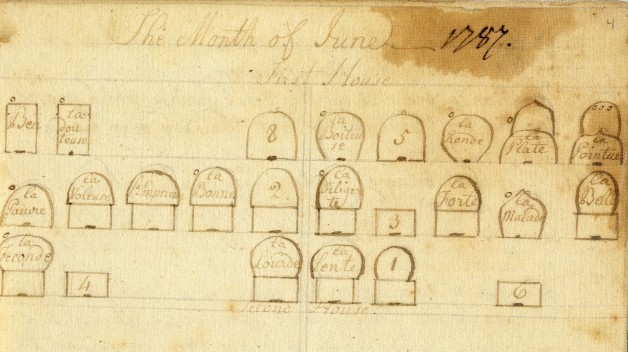 The Month of June 1787. 4
First House
Ben la Boiteuse 8 la Boiteuse 5 la Ronde la Plate la Pointue
la Pauvre la Voleuse la Bonne 2 la Diligente 3 la Forte la Malade la Belle
la Seconde 4 la Lourde la Lente 1 6
Second House